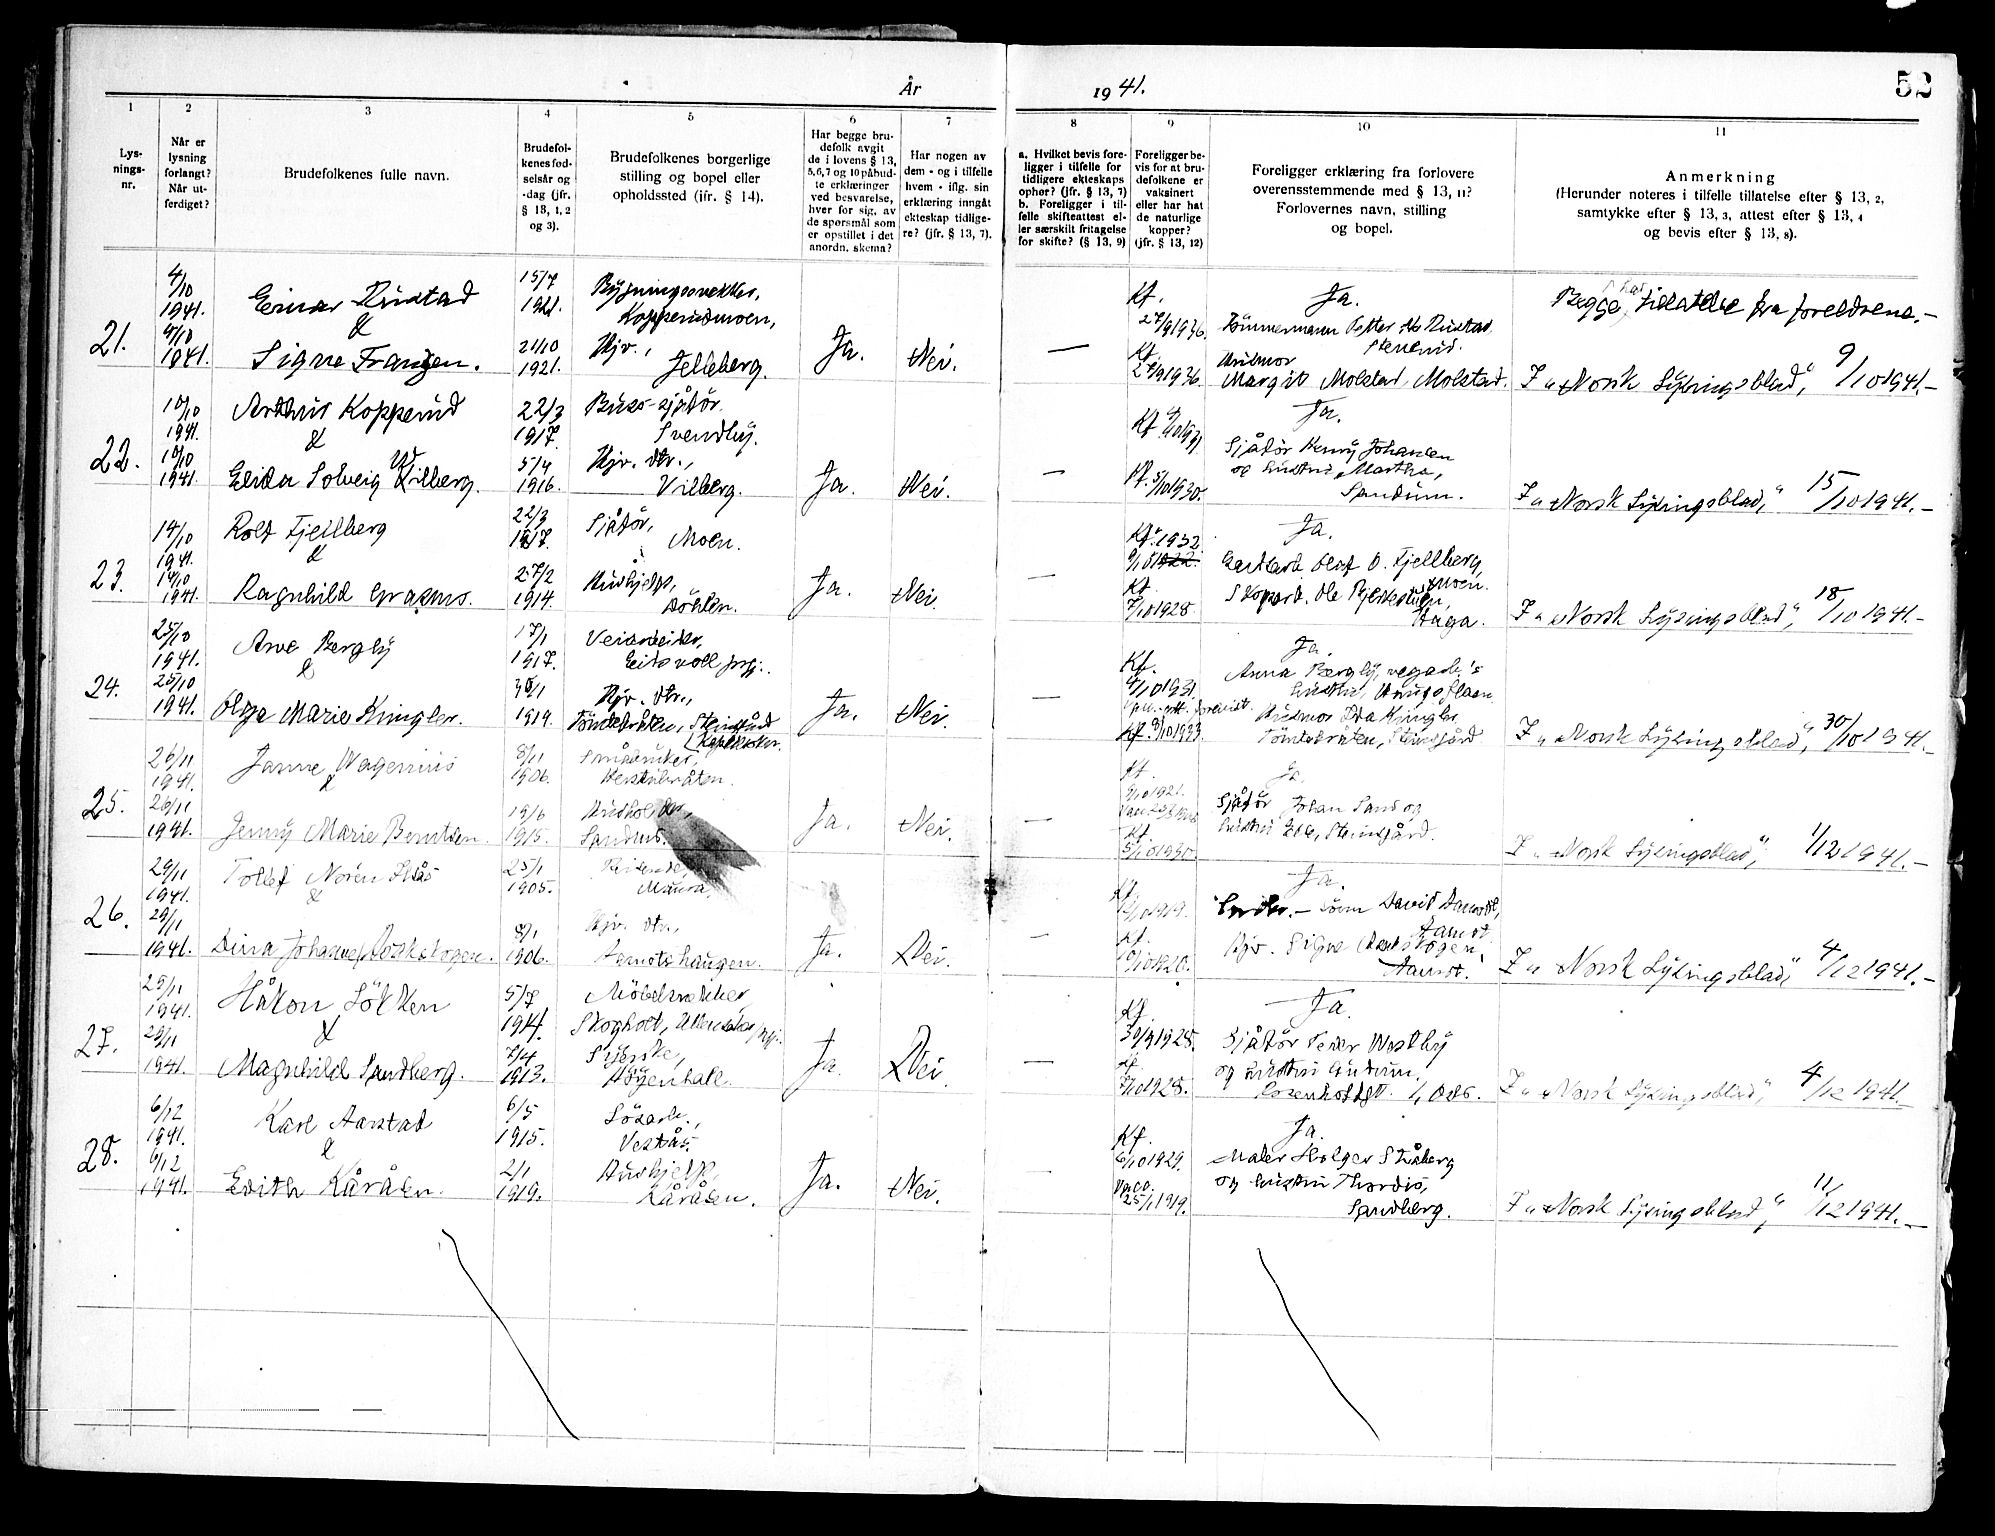 År
1941.
52
1
2
3
4
5
6
7
8
9
10
11
Lys-
nings-
nr.
Når er
lysning
forlangt?
Når ut-
ferdiget?
Brudefolkenes fulle navn.
Brudefol-
kenes fød-
selsår og
-dag (jfr.
§ 13, 1, 2
og 3).
Brudefolkenes borgerlige
stilling og bopel eller
opholdssted (jfr. § 14).
Har begge bru-
defolk avgit
de i lovens § 13,
5,6,7 og 10 påbud-
te erklæringer
ved besvarelse,
hver for sig, av
de spørsmål som
er opstillet i det
anordn. skema?
Har nogen av
dem - og i tilfelle
hvem - iflg. sin
erklæring inngåt
ekteskap tidlige-
re? (jfr. § 13, 7).
a. Hvilket bevis fore-
ligger i tilfelle for
tidligere ekteskaps
ophør? (jfr. § 13, 7)
b. Foreligger i til-
felle skifteattest el-
ler særskilt fritagelse
for skifte? (§ 13, 9)
Foreligger be-
vis for at bru-
defolkene er
vaksinert
eller har hat
de naturlige
kopper?
(jfr. § 13, 12)
Foreligger erklæring fra forlovere
overensstemmende med § 13, 11?
Forlovernes navn, stilling
og bopel.
Anmerkning
(Herunder noteres i tilfelle tillatelse efter § 13, 2,
samtykke efter § 13, 3, attest efter § 13, 4
og bevis efter § 13, 8).
21.
4/10
1941.
4/10
1941.
Einar Rustad
&
Signe Franzen.
15/7
1921.
21/10
1921.
Bygningssnekker,
Kopperudmoen,
Hjv.,
Jelleberg.
Ja.
Nei.
—
Kf.
27/9 1936.
Kf.
27/9 1936.
Ja.
Tömmermann Petter Rustad
Stenerud.
Husmor
Margit Molstad, Molstad.
Begge har tillatelse fra foreldrene.-
I "Norsk Lysingsblad", 9/10 1941.-
22.
10/10
1941.
10/10
1941.
Arthur Kopperud
&
Elida Solveig Vilberg.
22/3
1917.
5/4
1916.
Buss-sjåför.
Svendby.
Hjv. dtr.,
Vilberg.
Ja.
Nei.
—
Kf. 4/10 1931
Kf. 5/10 1930.
Ja.
Sjåför Henry Johansen
og hustru Martha,
Sandum.
I "Norsk Lysingsblad," 15/10 1941.-
23.
14/10
1941.
14/10
1941.
Rolf Fjellberg
&
Ragnhild Grasmo.
22/3
1917.
27/2
1914.
Sjåför,
Moen.
Hushjelp,
Döhlen.
Ja.
Nei.
—
Kf. 1932
Kf.
7/10 1928.
Ja.
Olof O. Fjellberg,
Moen.
Ole
Haga.
I "Norsk Lysingsblad", 18/10 1941.-
24.
25/10
1941.
25/10
1941.
Arve Bergly
&
Olga Marie Kingler.
17/1
1917.
1919.
Veiarbeider,
Eidsvoll prgj.
Hjv. dtr.,
Tömtebråten, Steinsgård
Ja.
Nei.
—
Kf.
4/10 1931
Kf. 8/10 1933
Ja.
Anna Bergly, vegarb.'s
hustru,
Husmor Ida Kingler
Tömtebråten, Steinsgård
I "Norsk Lysingsblad", 30/10 1941.-
25.
26/11
1941.
26/11
1941.
Janne Wagenius
&
Jenny Marie Berntsen.
8/11
1906.
19/6
1915.
Småbruker,
Sandnes.
Ja.
Nei.
—
Kf.
9/10 1921.
Kf.
5/10 1930
Ja.
Sjåför Johan Sand og
hustru Steinsgård.
I "Norsk Lysingsblad", 1/12 1941.-
26.
29/11
1941.
29/11
1941.
Tollef Norén
&
Dina Johanne
25/1
1905.
8/1
1906.
Maura,
Hjv. dtr.,
Aamotshaugen.
Ja.
Nei.
—
Kf.
1919.
Kf.
1920.
Ja.
David Aamodt,
Aamot
Hjv. Signe
Aamot.
I "Norsk Lysingsblad" 4/12 1941.-
27.
25/11
1941.
25/11
1941.
Håkon Lökken
&
Magnhild Sandberg.
5/7
1914.
7/4
1913.
Möbelsnekker,
Skogholt, Ullensaker prgj.
Syerske,
Höyenhall.
Ja.
Nei.
—
Kf.
30/9 1928.
Kf.
7/10 1928.
Ja.
Sjåför Peder Westby
og hustru Gudrun,
Rosenholdgt. 1, Oslo.
I "Norsk Lysingsblad", 4/12 1941.
28.
6/12
1941.
6/12
1941.
Karl Aarstad
&
Edith Kåråsen.
6/5
1915.
2/1
1919.
Lösarb.,
Vestås.
Hushjelp,
Kåråsen.
Ja.
Nei.
—
Kf.
6/10 1929.
Vacc.
25/1 1919.
Ja.
Maler Holger Stuberg
og hustru Thordis,
Sandberg.
I "Norsk Lysingsblad", 11/12 1941.-